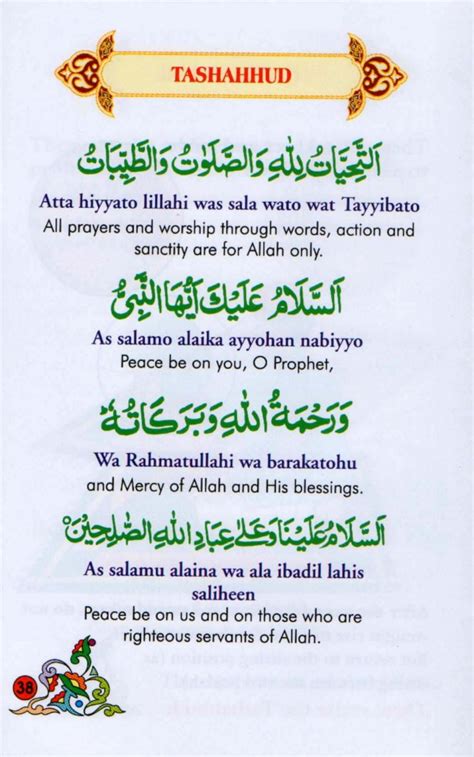 TASHAHHUD
اَلتَّحِيَّاتُ لِلّٰهِ وَالصَّلَوٰتُ وَالطَّيِّبَاتُ
Atta hiyyato lillahi was sala wato wat Tayyibato
All prayers and worship through words, action and
sanctity are for Allah only.
اَلسَّلَامُ عَلَيْكَ اَيُّهَا النَّبِىُّ
As salamo alaika ayyohan nabiyyo
Peace be on you, O Prophet,
وَرَحْمَةُ اللّٰهِ وَبَرَكَاتُهٗ
Wa Rahmatullahi wa barakatohu
and Mercy of Allah and His blessings.
اَلسَّلَامُ عَلَيْنَا وَعَلٰى عِبَادِ اللّٰهِ الصّٰلِحِيْنَ
As salamu alaina wa ala ibadil lahis
saliheen
Peace be on us and on those who are
righteous servants of Allah.
38